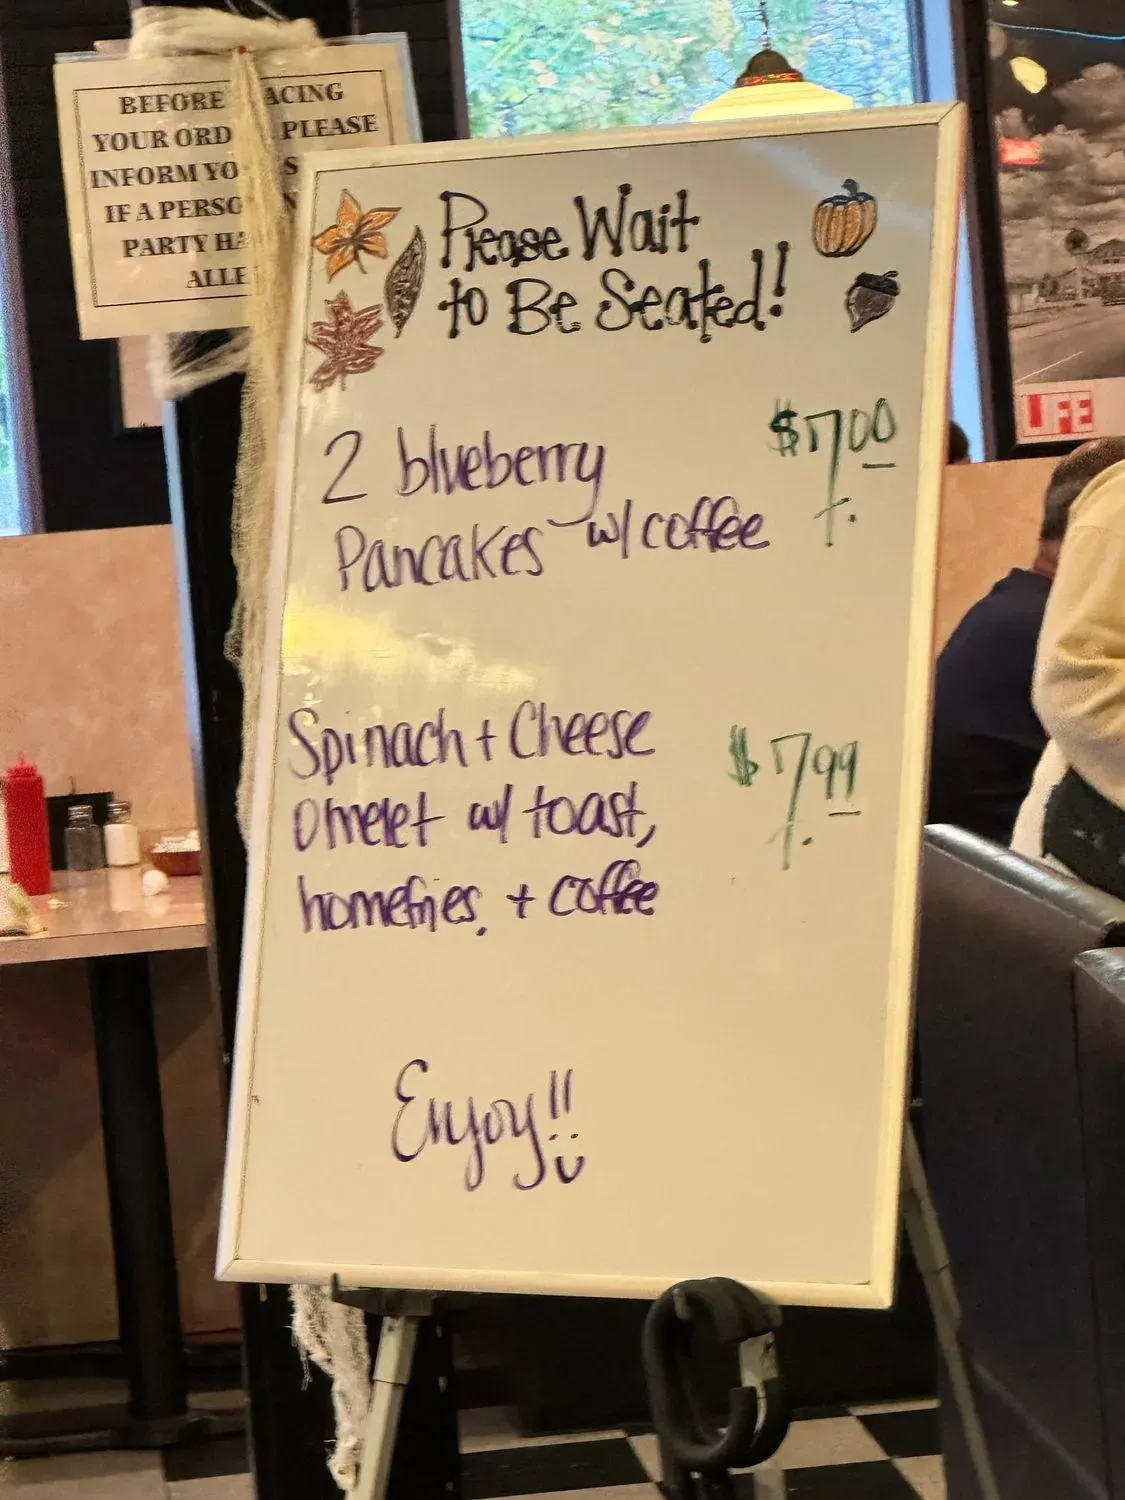 BEFORE ACING
YOUR ORD PLEASE
INFORM YO S
IF A PERSO N
PARTY HA
ALLE
Please Wait
to Be Seated!!
2 blueberry $7.00
Pancakes w/ coffee
Spinach + Cheese $7.99
omelet w/ toast,
homefries, + coffee
Enjoy!!
LIFE